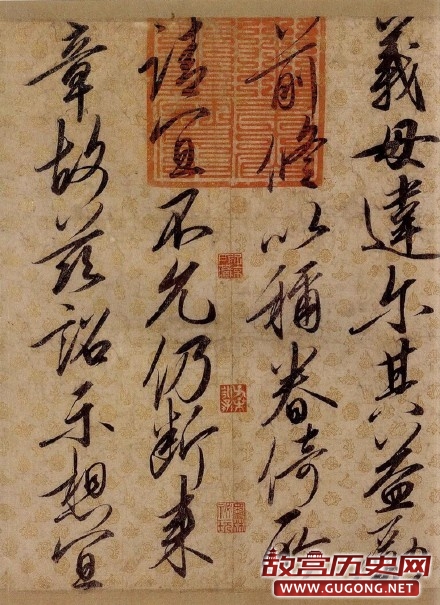 義毋違尔其益勵
前修以稱眷倚所
請宜不允仍斷来
章故茲詔示想宜
故宫历史网
WWW.GUGONG.NET